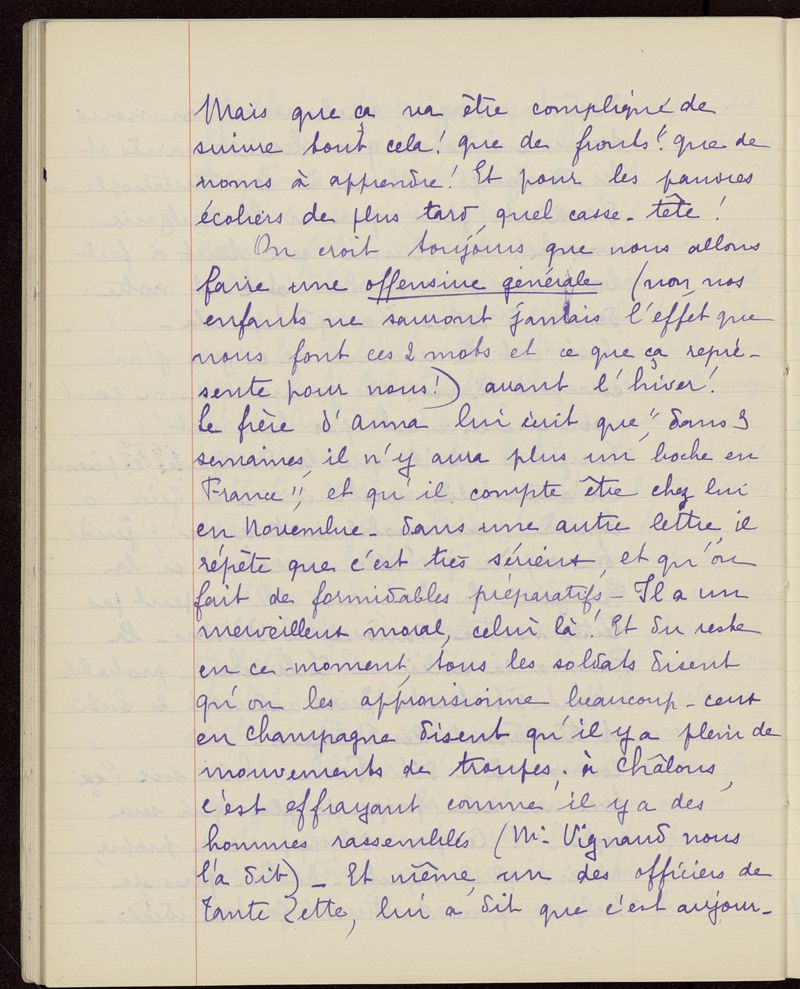 Mais que ça va être compliqué de
suivre tout cela! que de fronts! que de
noms à apprendre! Et pour les pauvres
écoliers de plus tard, quel casse-tête!
On croit toujours que nous allons
faire une offensive générale (non, nos
enfants ne sauront jamais l'effet que
nous font ces 2 mots et ce que ça repré-
sente pour nous!) avant l'hiver!
Le frère d'Anna lui écrit que "dans 3
semaines, il n'y aura plus un boche en
France", et qu'il compte être chez lui
en Novembre - dans une autre lettre, il
répète que c'est très sérieux, et qu'on
fait de formidables préparatifs - Il a un
merveilleux moral, celui là! Et du reste
en ce moment, tous les soldats disent
qu'on les approvisionne beaucoup - ceux
en Champagne disent qu'il y a plein de
mouvements de troupes. à Châlons,
c'est effrayant comme il y a des
hommes rassemblés (Mr Vignaud nous
l'a dit) - Et même, un des officiers de
Tante Zette, lui a dit que c'est aujour-